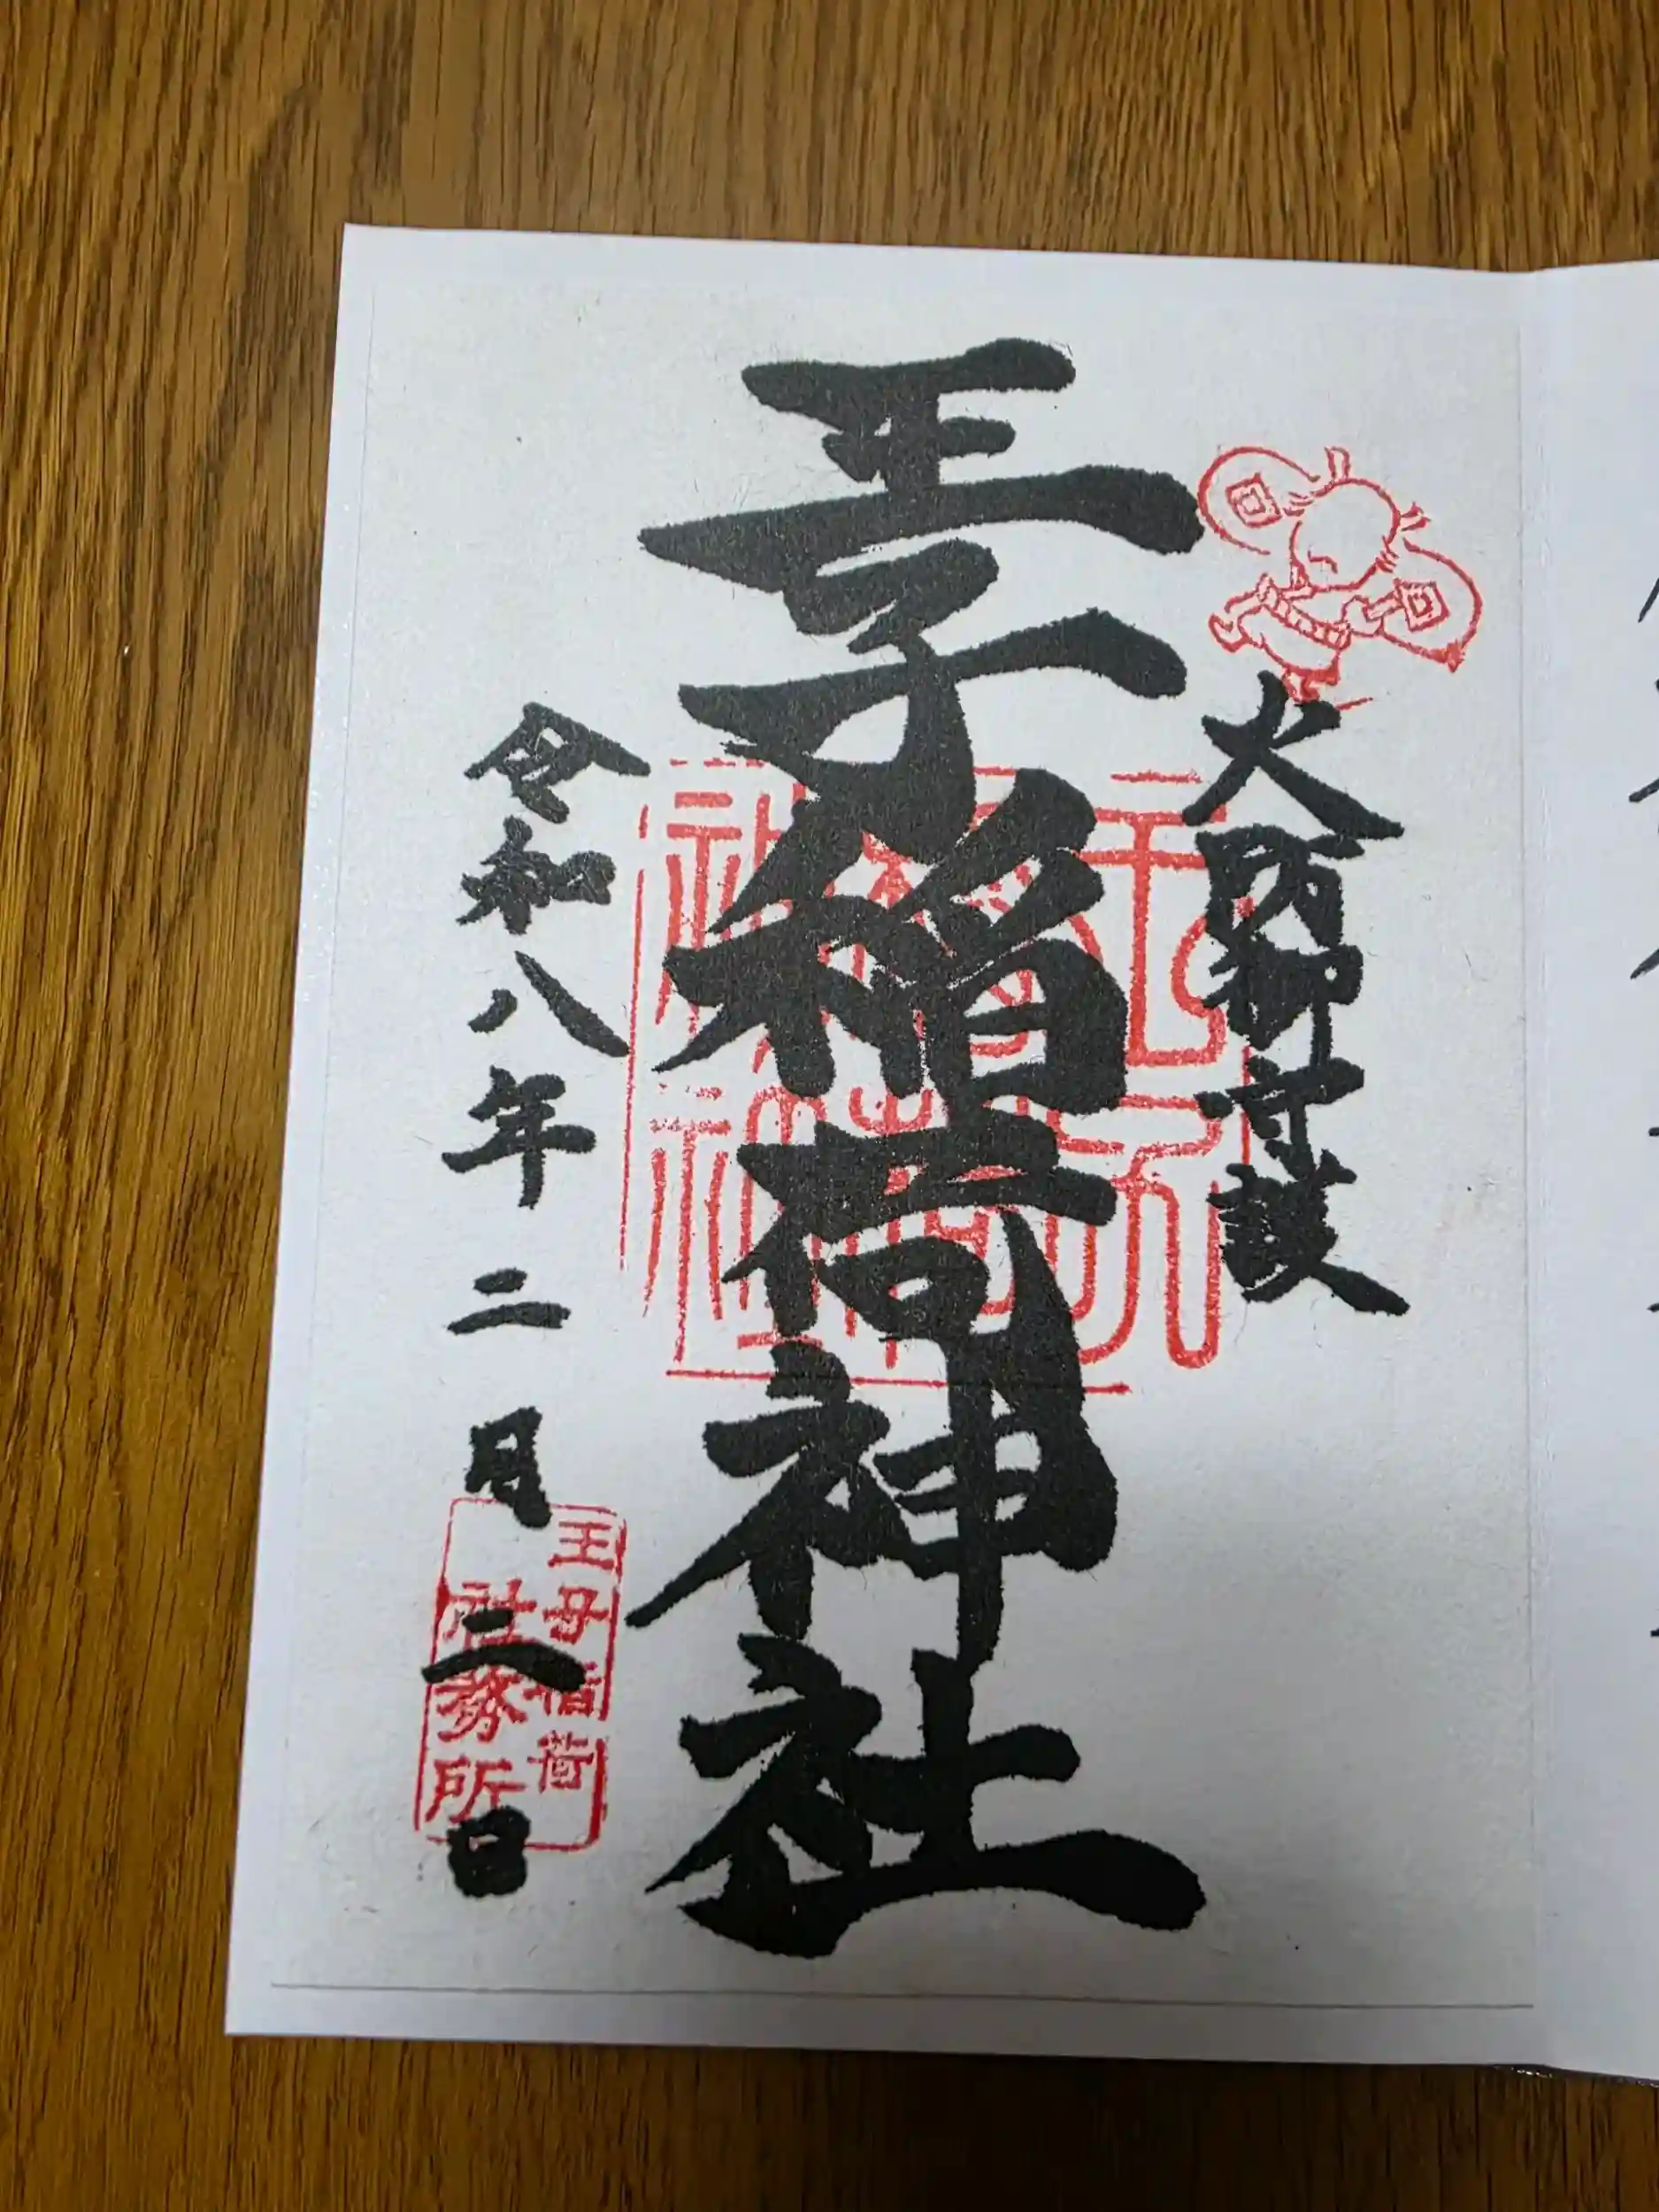 火防御守護
王子稲荷神社
王子
稲荷
神社
令和八年二月二日
王子稲荷
社務所